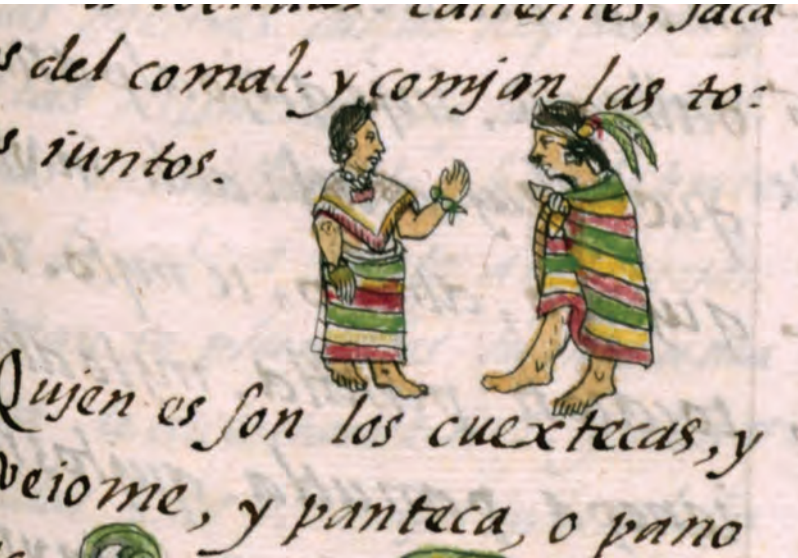 calientes, saca
s del comal: y comjan las to:
s iuntos.
Qujen es son los cuextecas, y
veiome, y panteca, o pano